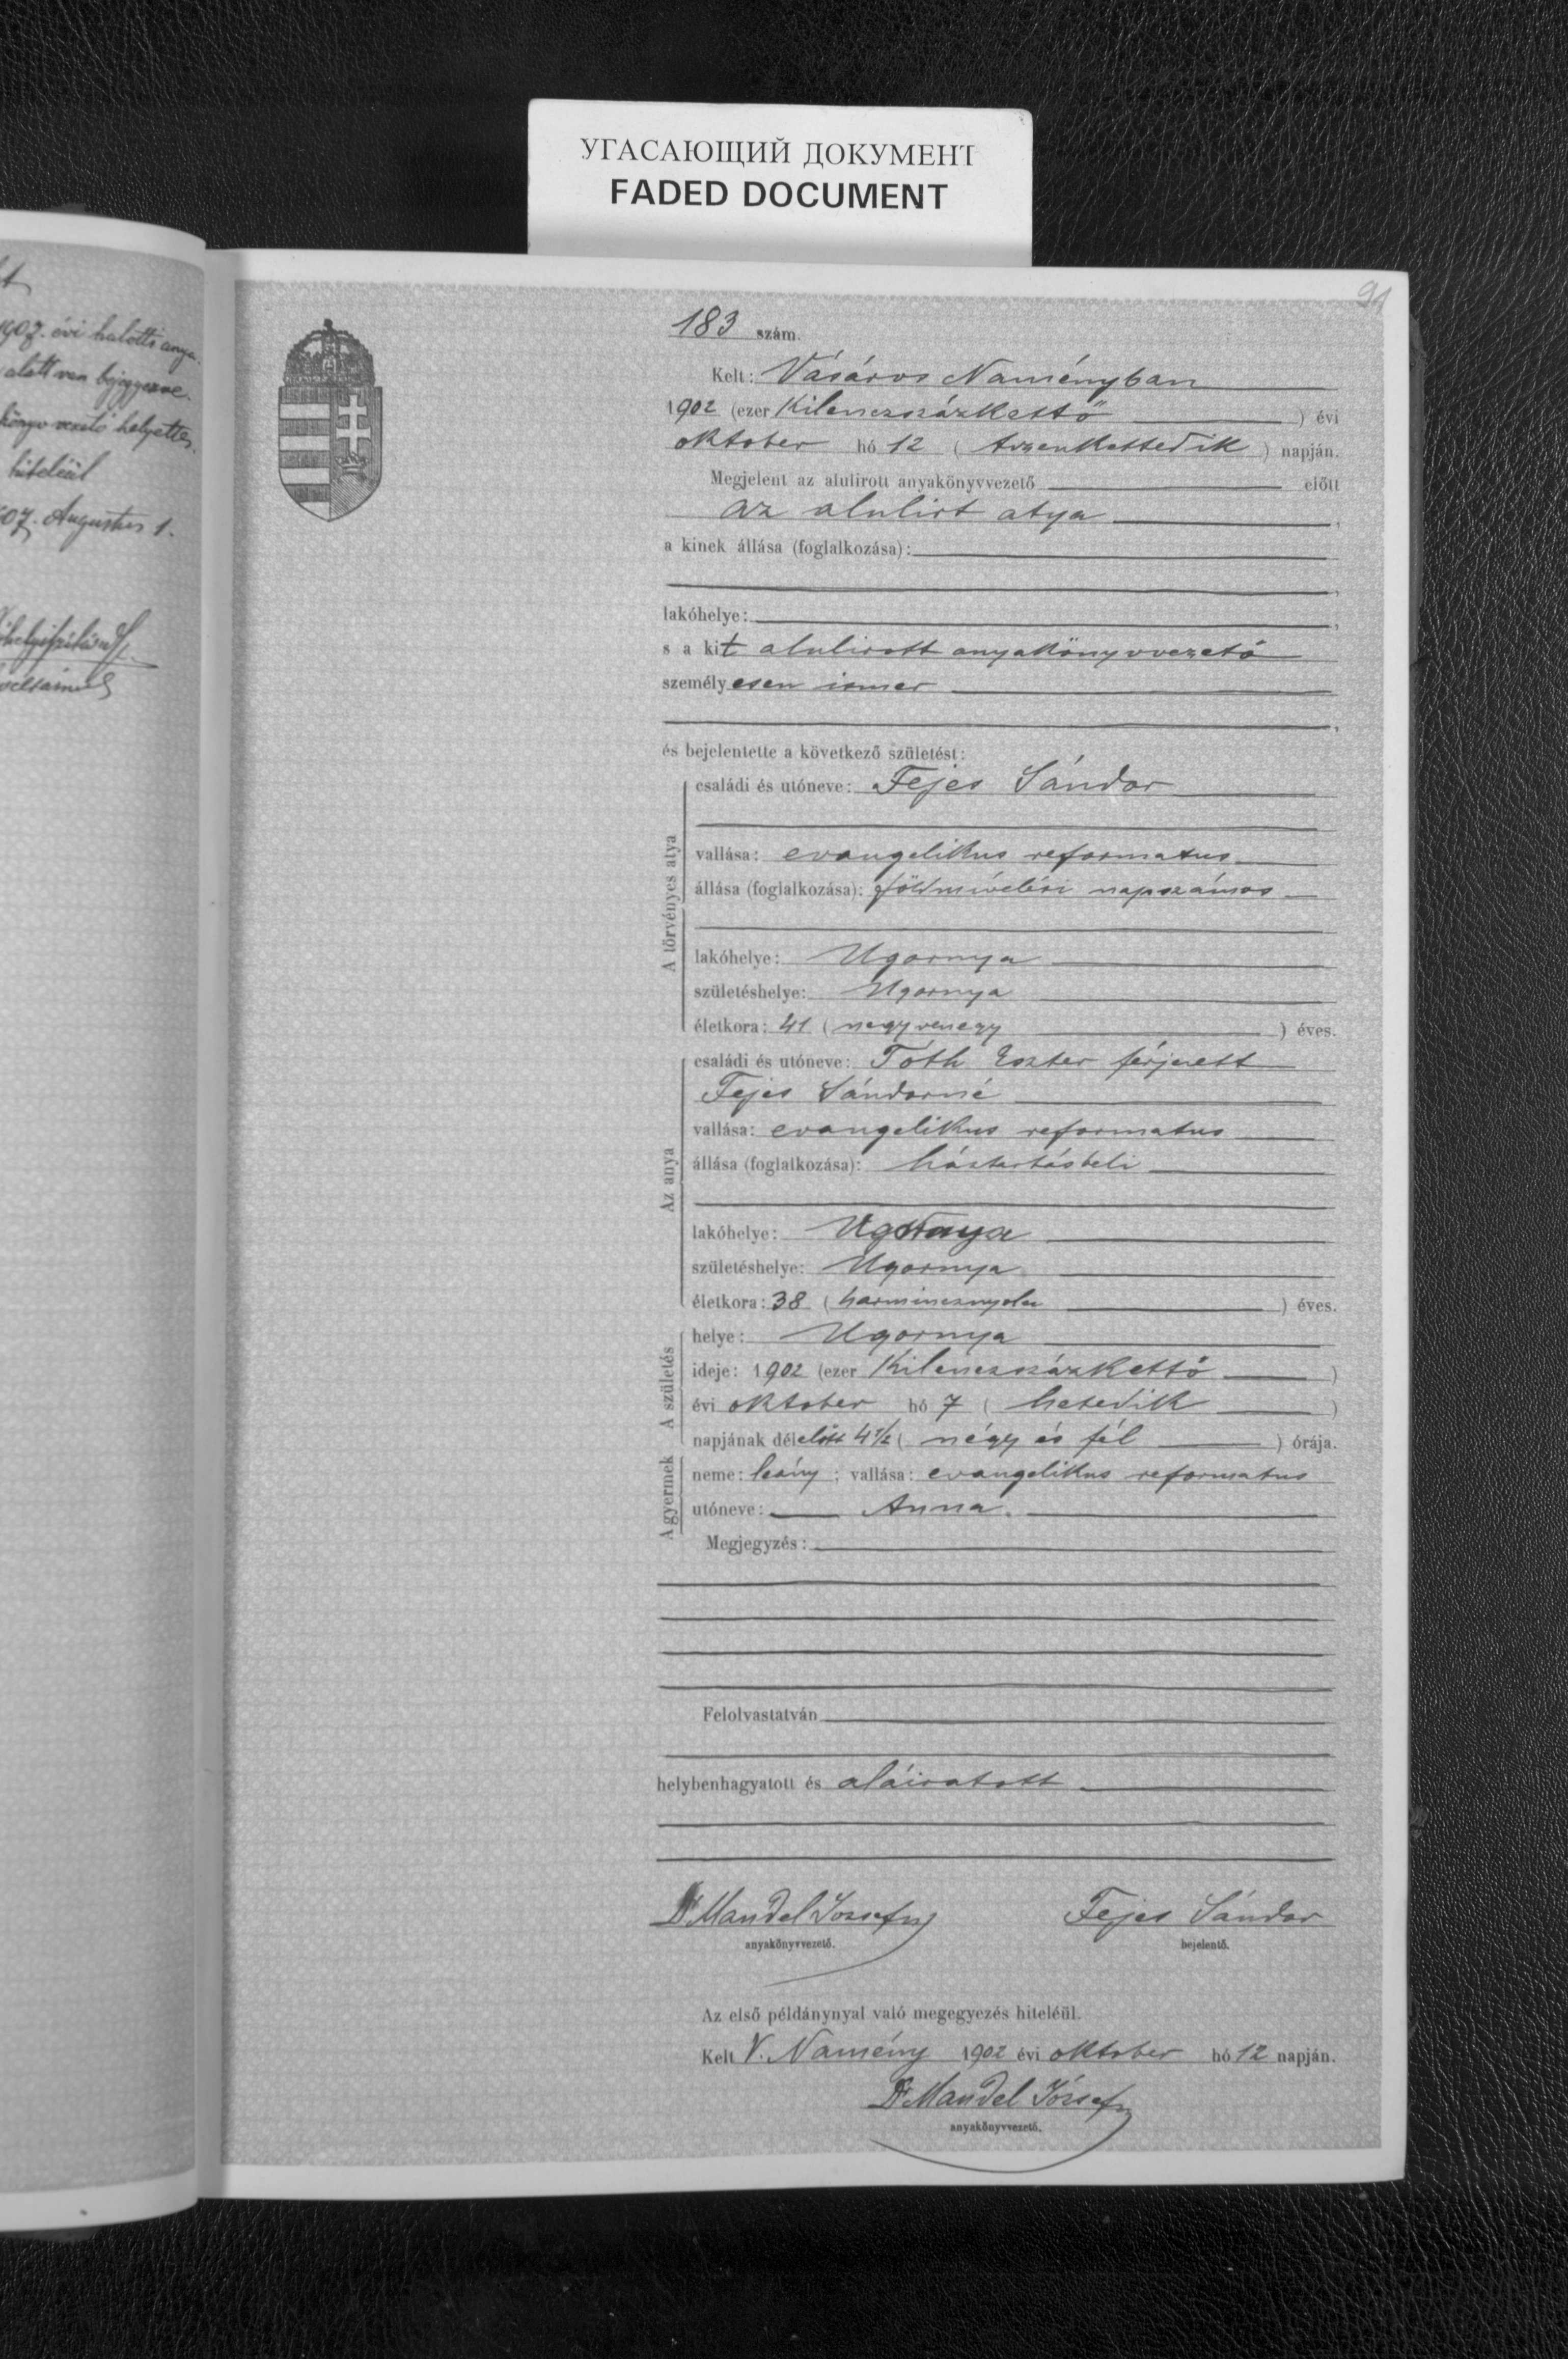 УГАСАЮЩИЙ ДОКУМЕНТ
FADED DOCUMENT
1907. évi halotti anya
alatt van bejegyezve.
könyvvezető helyettes
hiteléül
07. Augustus 1.
91
183 szám.
Kelt: Vásáros Naményban
1902 (ezer kilenczszázkettő) évi
oktober hó 12 (tizenkettedik) napján.
Megjelent az alulirott anyakönyvvezető előtt
az alulirt atya,
a kinek állása (foglalkozása):
lakóhelye:
s a kit alulirott anyakönyvvezető
személyesen ismer
és bejelentette a következő születést:
A törvényes atya
családi és utóneve: Fejes Sándor
vallása: evangelikus reformatus
állása (foglalkozása): földmívelési napszámos
lakóhelye: Ugornya
születéshelye: Ugornya
életkora: 41 (negyvenegy) éves.
Az anya
családi és utóneve: Tóth Eszter férjezett
Fejes Sándorné
vallása: evangelikus reformatus
állása (foglalkozása): háztartásbeli
lakóhelye: Ugornya
születéshelye: Ugornya
életkora: 38 (harmincznyolcz) éves.
A születés
helye: Ugornya
ideje: 1902 (ezer kilenczszázkettő)
évi oktober hó 7 (hetedik)
napjának délelőtt 4 1/2 (négy és fél) órája.
A gyermek
neme: leány; vallása: evangelikus reformatus
utóneve: Anna.
Megjegyzés:
Felolvastatván
helybenhagyatott és aláiratott
Dr Mandel József
Fejes Sándor
anyakönyvvezető.
bejelentő.
Az első példánynyal való megegyezés hiteléül.
Kelt V. Namény 1902 évi oktober hó 12 napján.
Dr Mandel József
anyakönyvvezető.